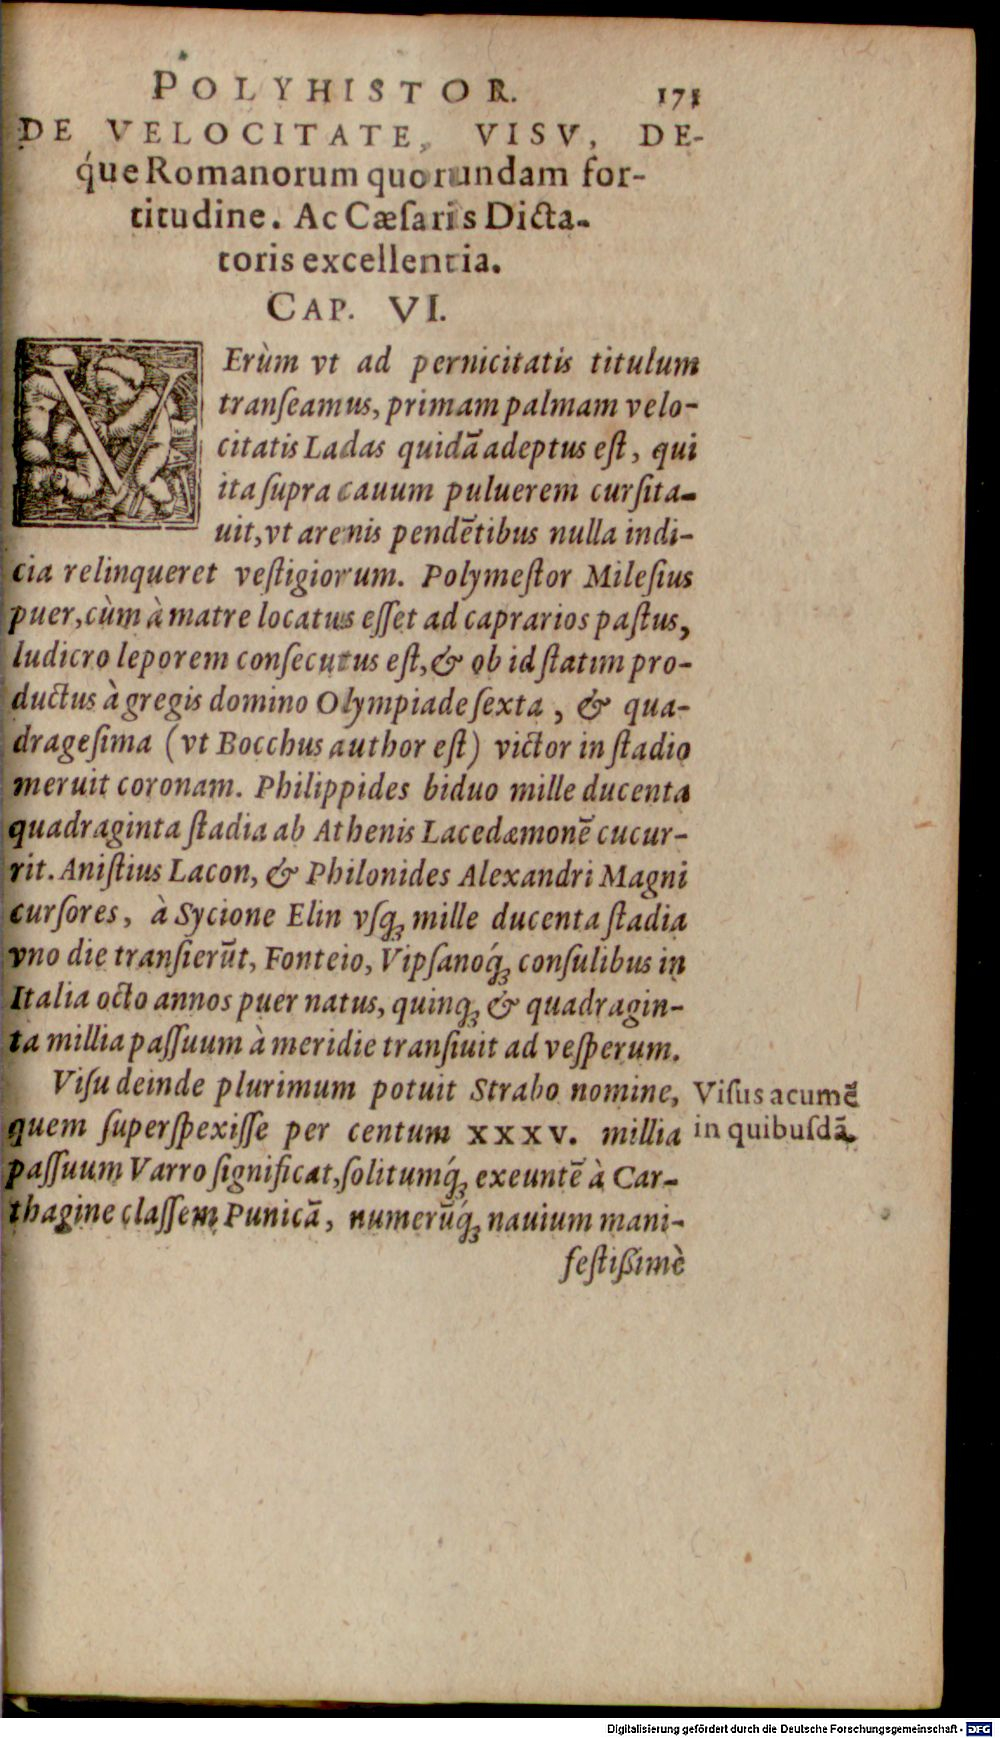 POLYHISTOR. 171
DE VELOCITATE, VISV, DE-
q́ue Romanorum quorundam for-
titudine. Ac Cæſaris Dicta-
toris excellentia.
CAP. VI.
VErùm vt ad pernicitatis titulum
tranſeamus, primam palmam velo-
citatis Ladas quidã adeptus eſt, qui
ita ſupra cauum puluerem curſita-
uit, vt arenis pendẽtibus nulla indi-
cia relinqueret veſtigiorum. Polymeſtor Mileſius
puer, cùm à matre locatus eſſet ad caprarios paſtus,
ludicro leporem conſecutus eſt, & ob id ſtatim pro-
ductus à gregis domino Olympiade ſexta, & qua-
drageſima (vt Bocchus author eſt) victor in ſtadio
meruit coronam. Philippides biduo mille ducenta
quadraginta ſtadia ab Athenis Lacedæmonẽ cucur-
rit. Aniſtius Lacon, & Philonides Alexandri Magni
curſores, à Sycione Elin vſq; mille ducenta ſtadia
vno die tranſierũt, Fonteio, Vipſanoq́; conſulibus in
Italia octo annos puer natus, quinq; & quadragin-
ta millia paſſuum à meridie tranſiuit ad veſperum.
Viſu deinde plurimum potuit Strabo nomine,
quem ſuperſpexiſſe per centum XXXV. millia
paſſuum Varro ſignificat, ſolitumq́; exeuntẽ à Car-
thagine claſſem Punicã, numerũq́; nauium mani-
feſtißimè
Viſus acumẽ
in quibuſdã.
Digitalisierung gefördert durch die Deutsche Forschungsgemeinschaft - DFG